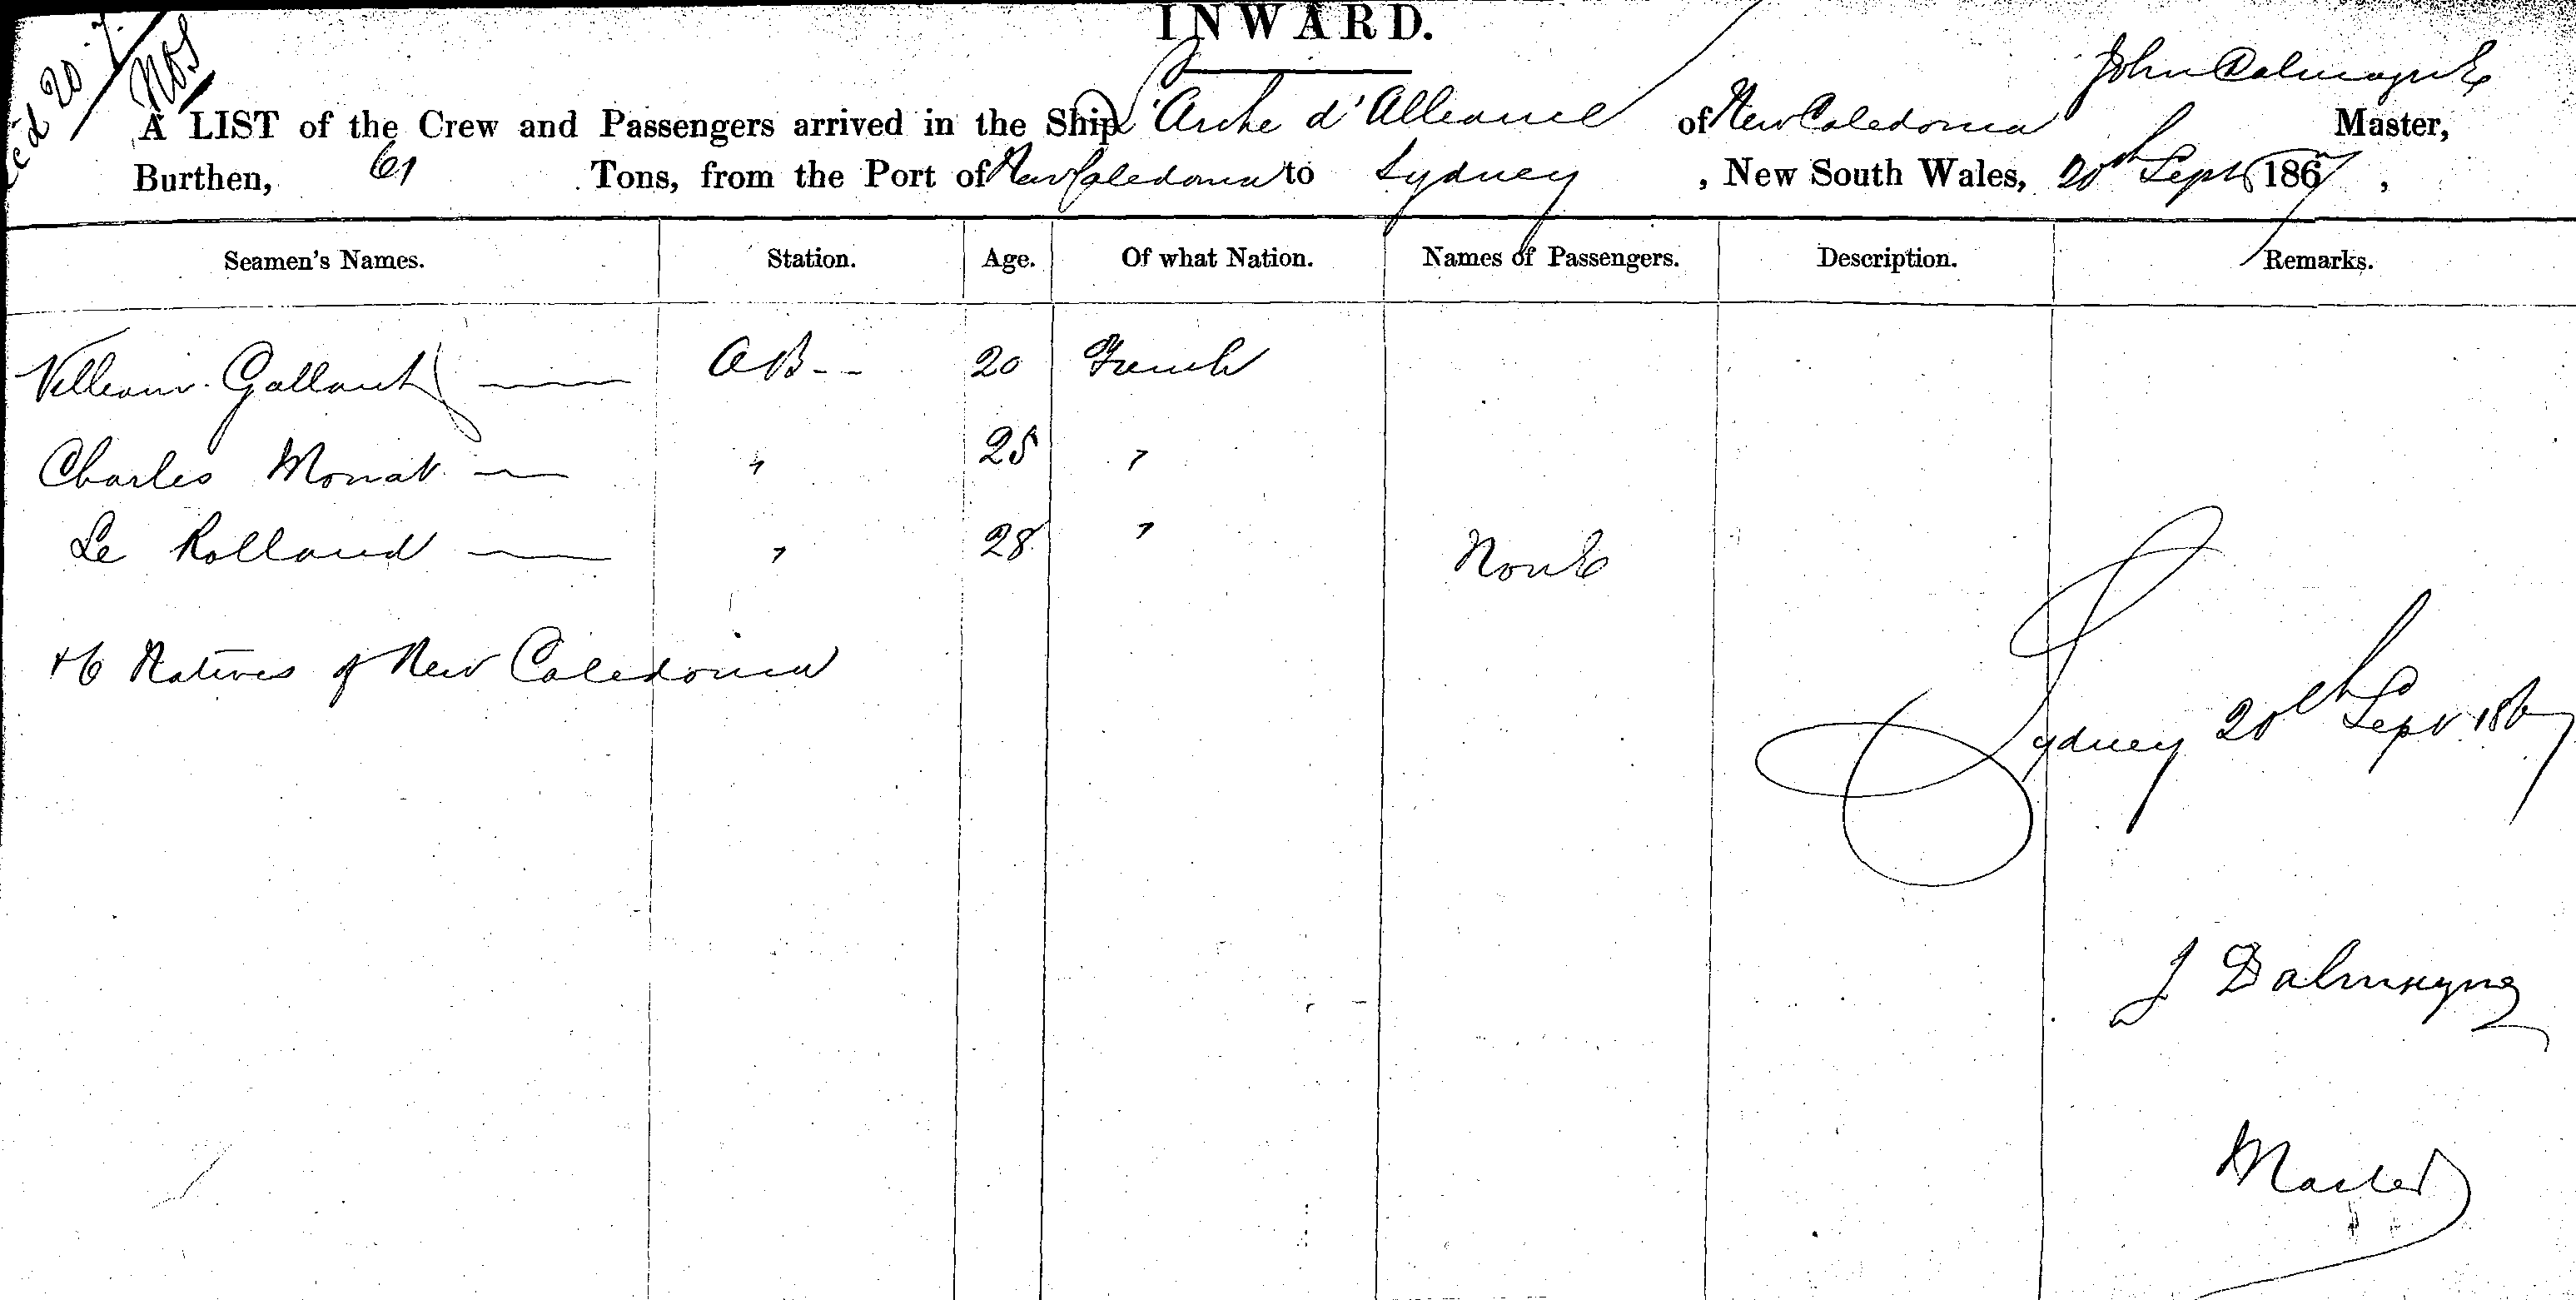 INWARD.
20
John Dalmayne
A LIST of the Crew and Passengers arrived in the Ship L'Arche d'Alliance of New Caledonia Master,
Burthen, 61 Tons, from the Port of New Caledonia to Sydney, New South Wales, 20th Sept 1867,
Seamen's Names. Station. Age. Of what Nation. Names of Passengers. Description. Remarks.
Gallant AB 20 French
Charles Monat " 25 "
Le Rolland " 28 " None
+ 6 Natives of New Caledonia
Sydney 20th Sept 1867
J Dalmayne
Master